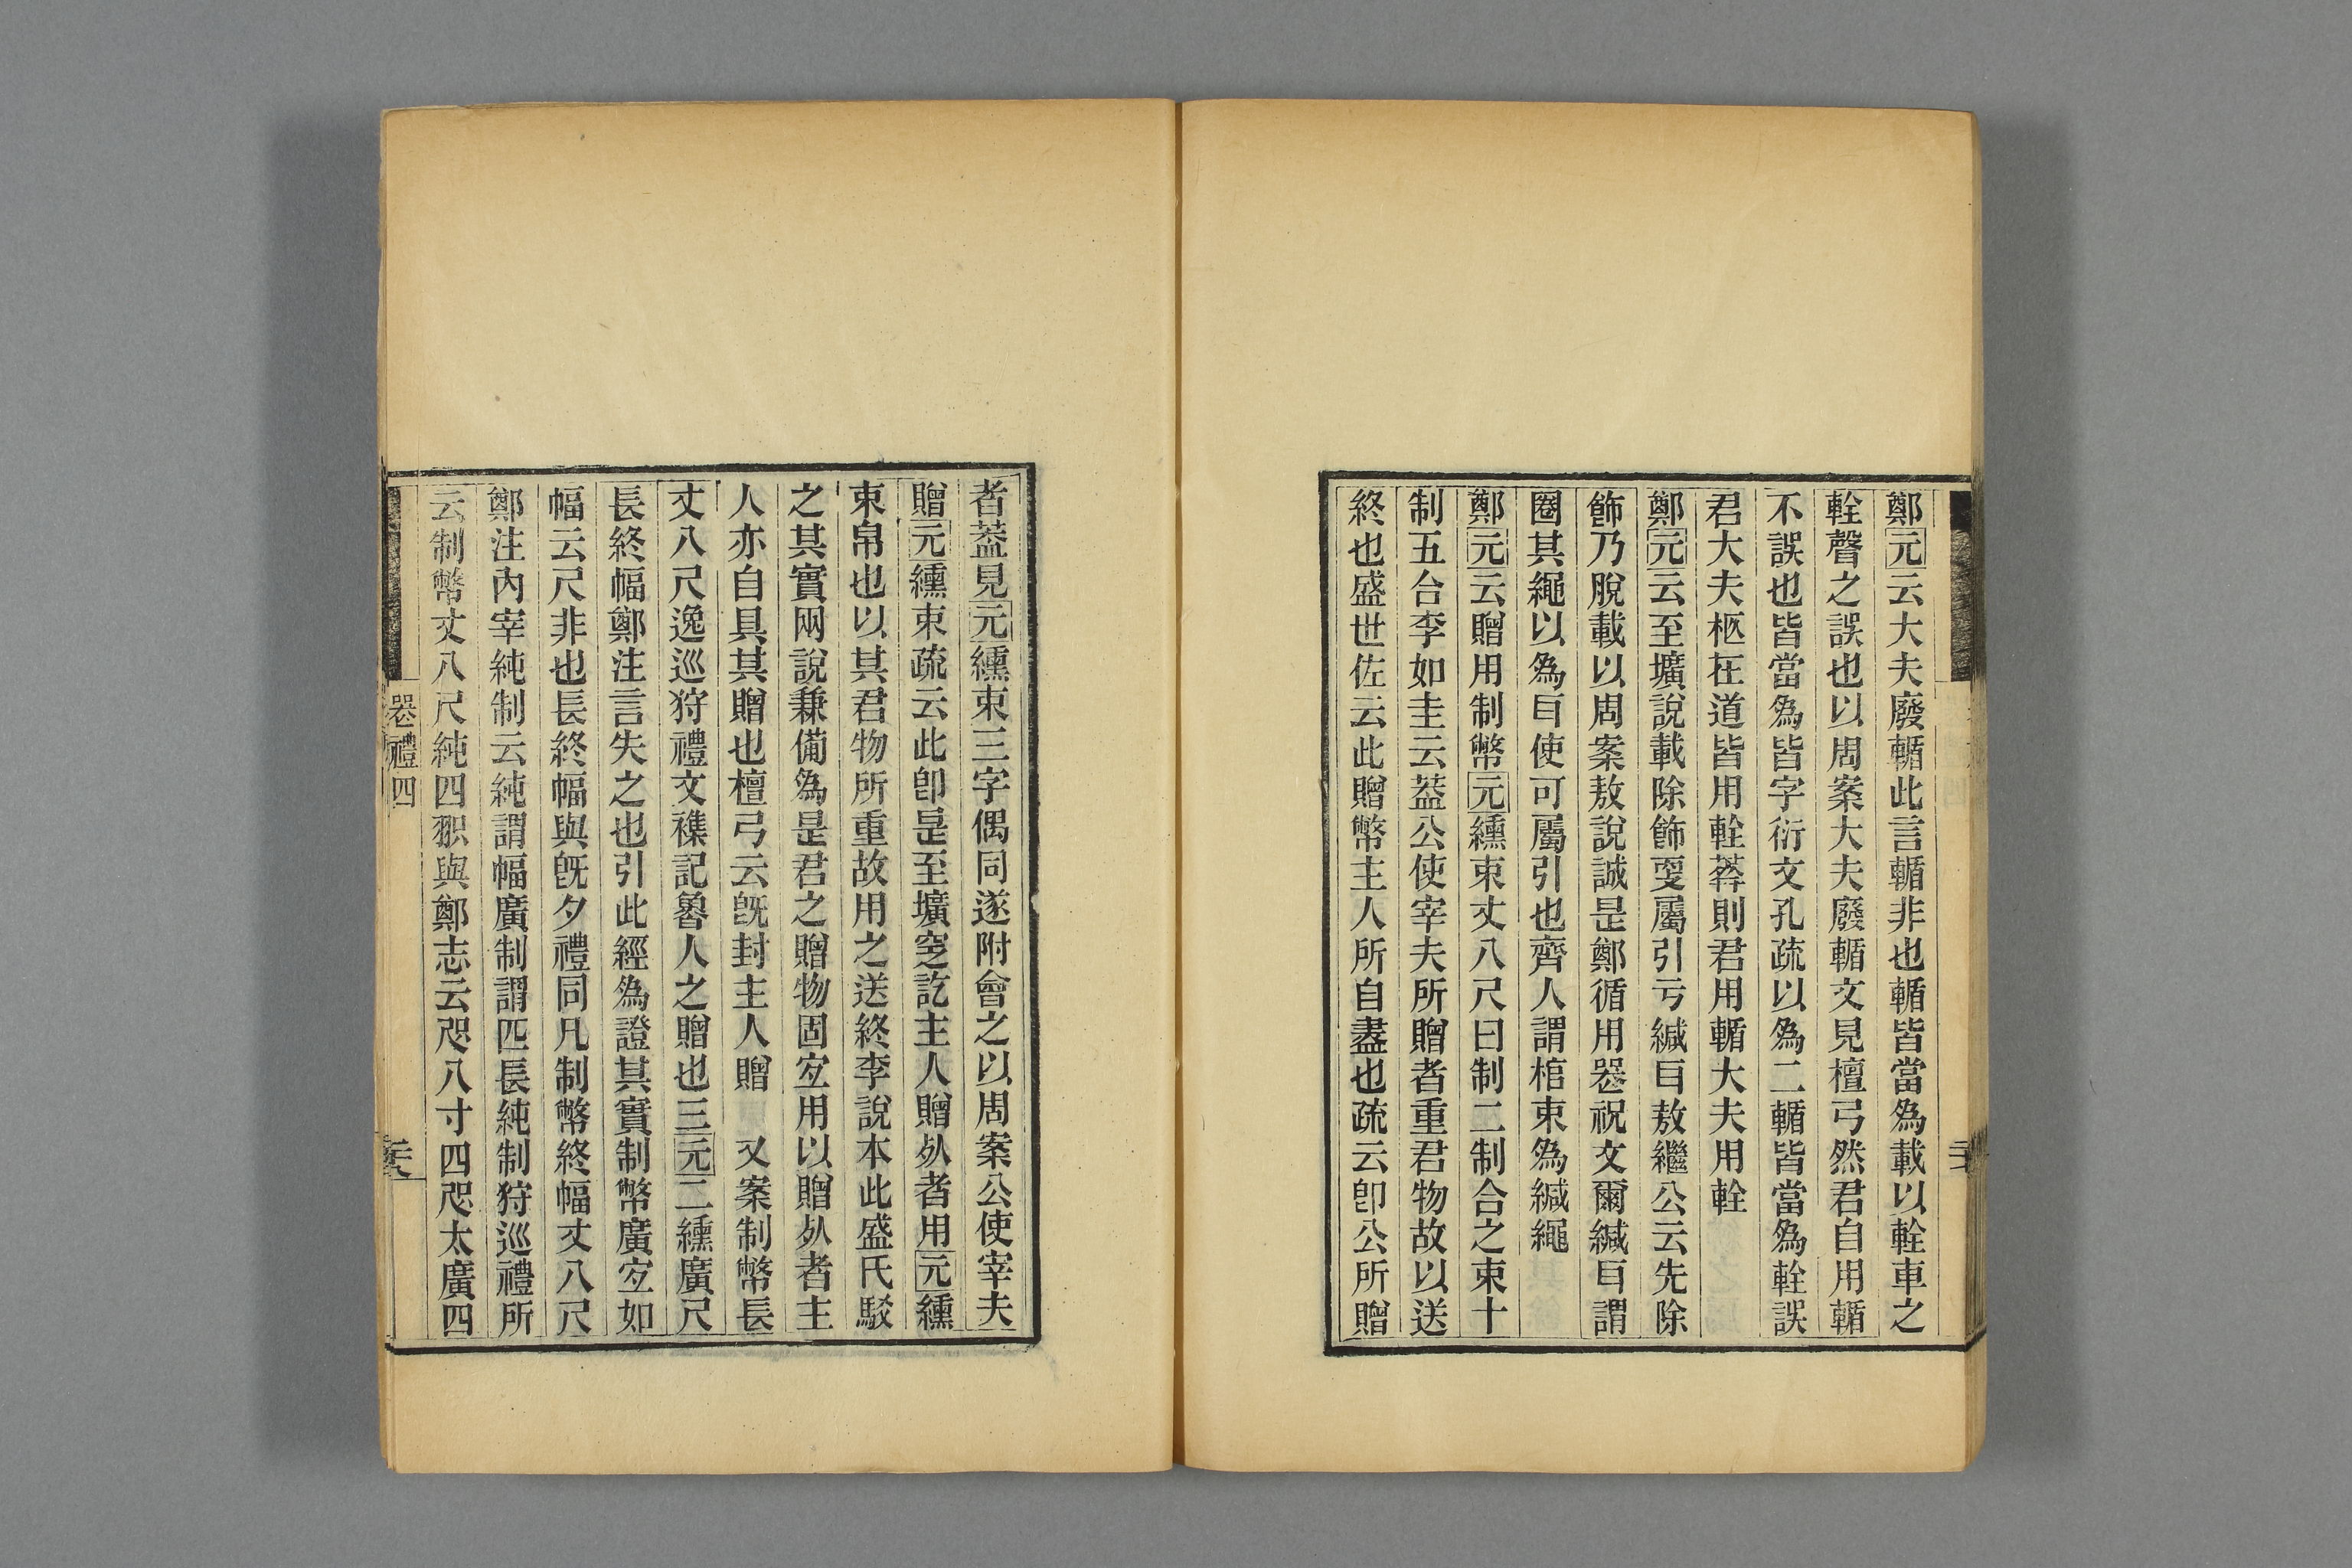 鄭元云大夫廢輴此言輴非也輴皆當爲載以輇車之
輇聲之誤也以周案大夫廢輴文見檀弓然君自用輴
不誤也皆當爲皆字衍文孔疏以爲二輴皆當爲輇誤
君大夫柩在道皆用輇葬則君用輴大夫用輇
鄭元云至壙說載除飾更屬引亏緘耳敖繼公云先除
飾乃脫載以周案敖說誠是鄭循用喪祝文爾緘耳謂
圈其繩以爲耳使可屬引也齊人謂棺束爲緘繩
鄭元云贈用制幣元纁束丈八尺曰制二制合之束十
制五合李如圭云葢公使宰夫所贈者重君物故以送
終也盛世佐云此贈幣主人所自盡也疏云卽公所贈
者葢見元纁束三字偶同遂附會之以周案公使宰夫
贈元纁束疏云此卽是至壙窆訖主人贈死者用元纁
束帛也以其君物所重故用之送終李說本此盛氏駁
之其實兩說兼備爲是君之贈物固宜用以贈死者主
人亦自具其贈也檀弓云旣封主人贈 又案制幣長
丈八尺逸巡狩禮文襍記魯人之贈也三元二纁廣尺
長終幅鄭注言失之也引此經爲證其實制幣廣宜如
幅云尺非也長終幅與旣夕禮同凡制幣終幅丈八尺
鄭注內宰純制云純謂幅廣制謂匹長純制狩巡禮所
云制幣丈八尺純四𦐖與鄭志云咫八寸四咫太廣四
喪禮四